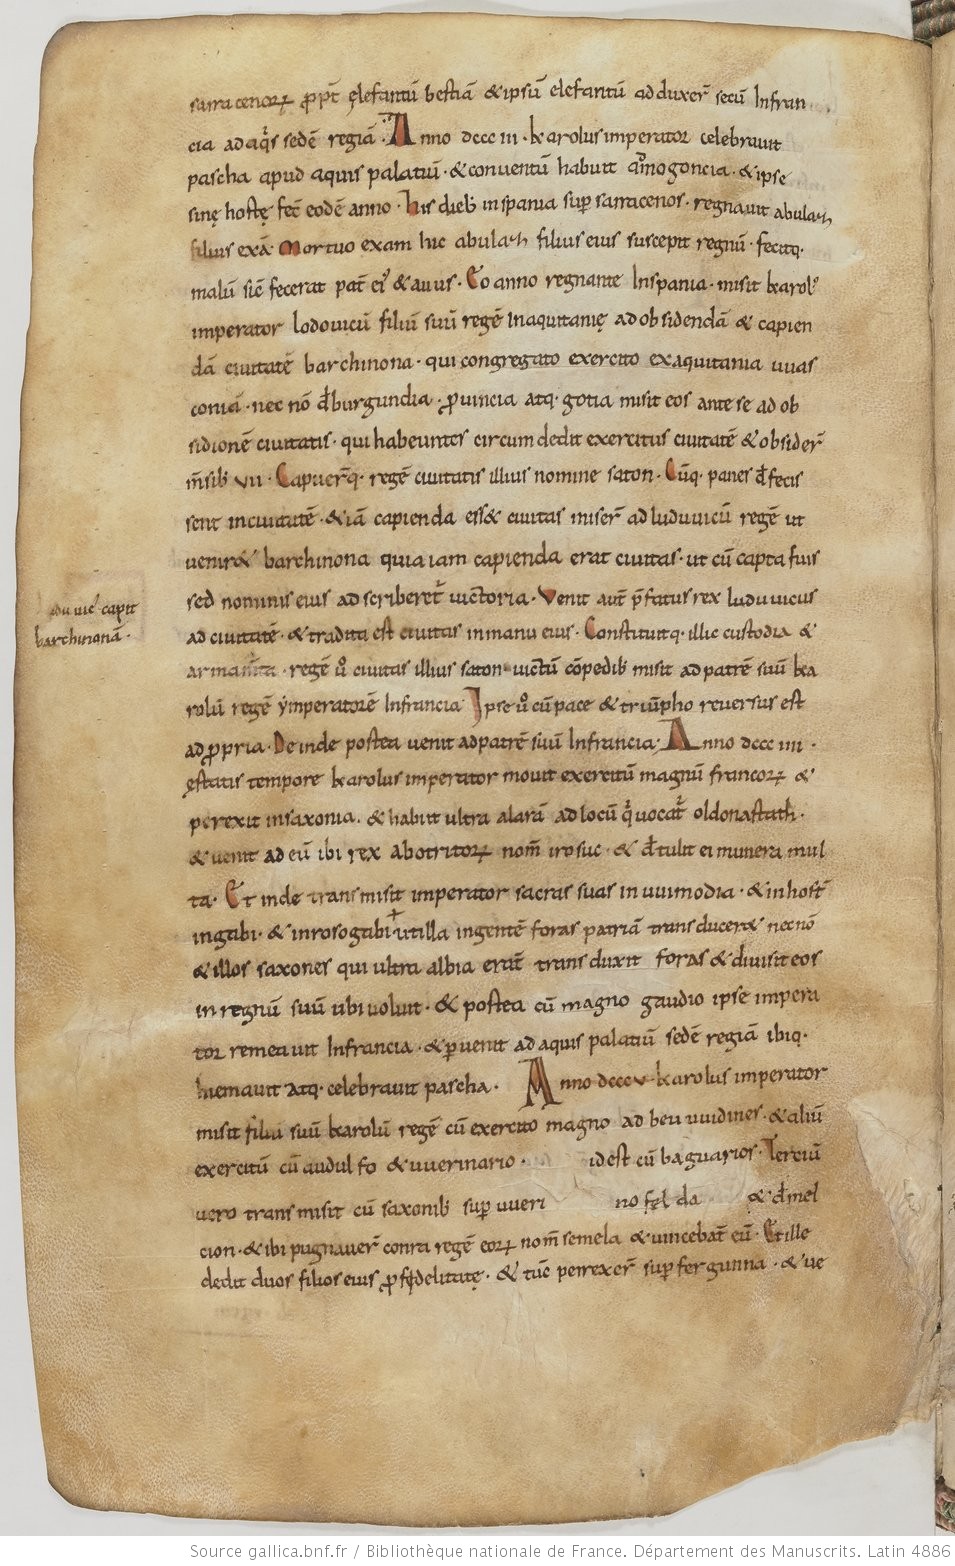 sarracenorꝝ ꝓpt̄ ęlefantū bestiā &ipsū elefantū adduxer̄ secū Infran
cia adaq̇s sedē regiā. Anno dccc iii. karolus imperator celebrauit
pascha apud aquis palatiū. &conuentū habuit amogoncia. &ipse
sinę hostę fec̄ eodē anno. his dieb; inspania suꝑ sarracenos. regnauit abulah
filius exā. mortuo exam hic abulah filius eius suscepit regnū. fecitq.
malū sic̄ fecerat pat̄ ei' &auus. Eo anno regnante Inspania. misit karol'
imperator lodouicū filiū suū regē Inaquitanię adobsidendā & capien
dā ciuitatē barchinona. qui congregato exercito exaquitania uuas
coniā. nec nō đburgundia. ꝓuincia atq. gotia misit eos ante se ad ob
sidionē ciuitatis. qui habeuntes circumdedit exercitus ciuitatē &obsider̄
m̄sib; vii. Capuer̄q. regē ciuitatis illius nomine saton. Cūq. panes đfecis
sent inciuitatē. &iā capienda ess& ciuitas miser̄ ad luduuicū regē ut
uenir& barchinona quia iam capienda erat ciuitas. ut cū capta fuis
sed nominis eius ad scriberet̄ uictoria. Venit aut̄ p̄fatus rex luduuicus
ad ciuitatē. &tradita est ciuitas inmanu eius. Constituitq. illic custodia &
armam̄ta. regē u̇ ciuitas illius saton uictū cōpedib; misit adpatrē suū ka
rolū regē ẏmperatorē Infrancia. Ipse u̇ cūpace &triūpho reuersus est
adꝓpria. Deinde postea uenit adpatrē suū Infrancia. Anno dccc iiii.
ęstatis tempore karolus imperator mouit exercitū magnū francorꝝ &
perexit insaxonia. &habuit ultra alarā adlocū q̇ uocat̄ oldonastath.
&uenit ad eū ibi rex abotritorꝝ nom̄ irosuc. & đtulit ei munera mul
ta. Et inde transmisit imperator sacras suas in uuimodia. &inhost̄
ingabi. &inrosogabi. utilla ingentē foras patriā transducer& necnō
&illos saxones qui ultra albia erat̄ transduxit foras &diuisit eos
inregnū suū ubi uoluit. & postea cū magno gaudio ipse impera
tor remeauit Infrancia. &ꝑuenit ad aquis palatiū sedē regiā ibiq.
hiemauit atq. celebrauit pascha. Anno dcccv karolus imperator
misit filiū suū karolū regē cū exercito magno ad beu uuidines. &aliū
exercitū cū audulfo &uuerinario. idest cū baguarios. Terciū
uero transmisit cū saxonib; suꝑ uueri nofelda &đmel
cion. &ibi pugnauer̄ contra regē eorꝝ nom̄ semela &uincebat̄ eū. Etille
dedit duos filios eius ꝓfidelitatę. & tūc perrexer̄ suꝑ fergunna. &ue
capit
barchinonā.